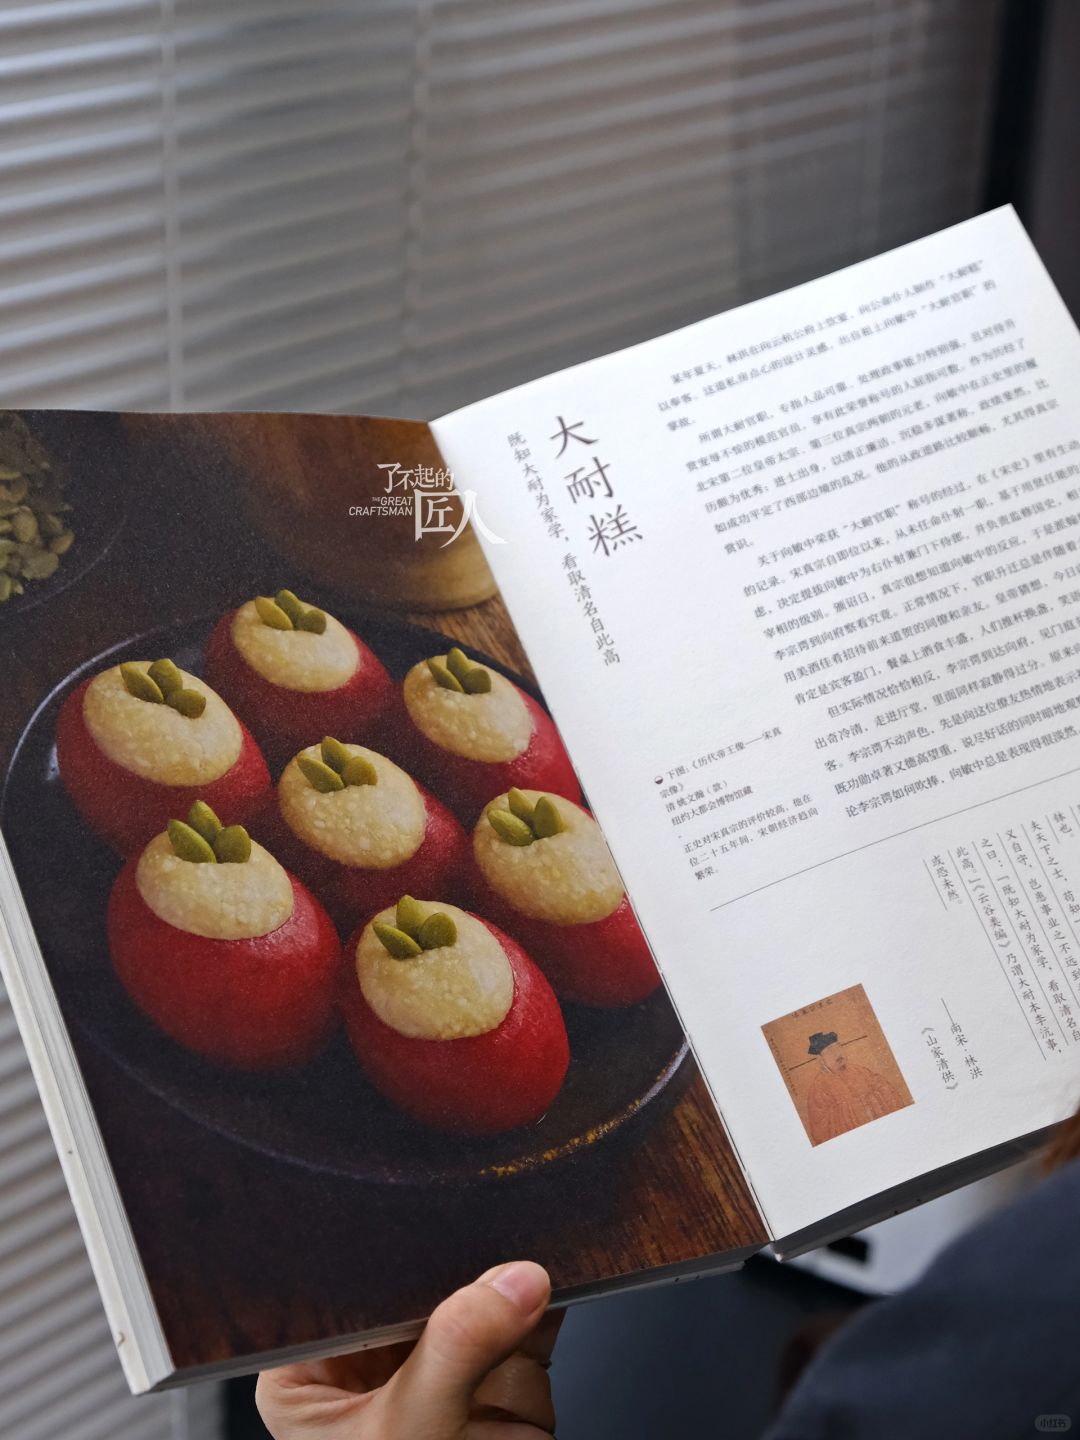 了不起的
匠人
THE GREAT
CRAFTSMAN
大耐糕
既知大耐为家学，看取清名自此高
某年夏天，林洪在向云杭公府上饮宴，向公命仆人制作“大耐糕”
以奉客。这道私房点心的设计灵感，出自祖上向敏中“大耐官职”的
掌故。
所谓大耐官职，专指人品可靠、处理政事能力特别强，且对待升
赏宠辱不惊的模范官员，享有此荣誉称号的人屈指可数。作为历经了
北宋第二位皇帝太宗、第三位真宗两朝的元老，向敏中在正史里的履
历颇为优秀：进士出身，以清正廉洁、沉稳多谋著称，政绩斐然，比
如成功平定了西部边境的乱况。他的从政道路比较顺畅，尤其得真宗
赏识。
关于向敏中荣获“大耐官职”称号的经过，在《宋史》里有生动
的记录。宋真宗自即位以来，从未任命仆射一职，基于用贤任能的
虑，决定提拔向敏中为右仆射兼门下侍郎，并负责监修国史，相
宰相的级别。颁诏日，真宗很想知道向敏中的反应，于是派翰
李宗谔到向府察看究竟。正常情况下，官职升迁总是伴随着
用美酒佳肴招待前来道贺的同僚和亲友。皇帝猜想，今日
肯定是宾客盈门，餐桌上酒食丰盛，人们推杯换盏，笑语
但实际情况恰恰相反，李宗谔到达向府，见门庭
出奇冷清，走进厅堂，里面同样寂静得过分。原来
客。李宗谔不动声色，先是向这位僚友热情地表示
既功勋卓著又德高望重，说尽好话的同时暗地观
论李宗谔如何吹捧，向敏中总是表现得很淡然
下图：《历代帝王像——宋真
宗像》
清 姚文瀚（款）
纽约大都会博物馆藏
正史对宋真宗的评价较高，他在
位二十五年间，宋朝经济趋向
繁荣。
体也。
夫天下之士，苟知
又自守，岂患事业之不远到
之曰：「既知大耐为家学，看取清名自
此高。」《云谷类编》乃谓大耐本李沆事，
或恐未然。
——南宋·林洪
《山家清供》
小红书